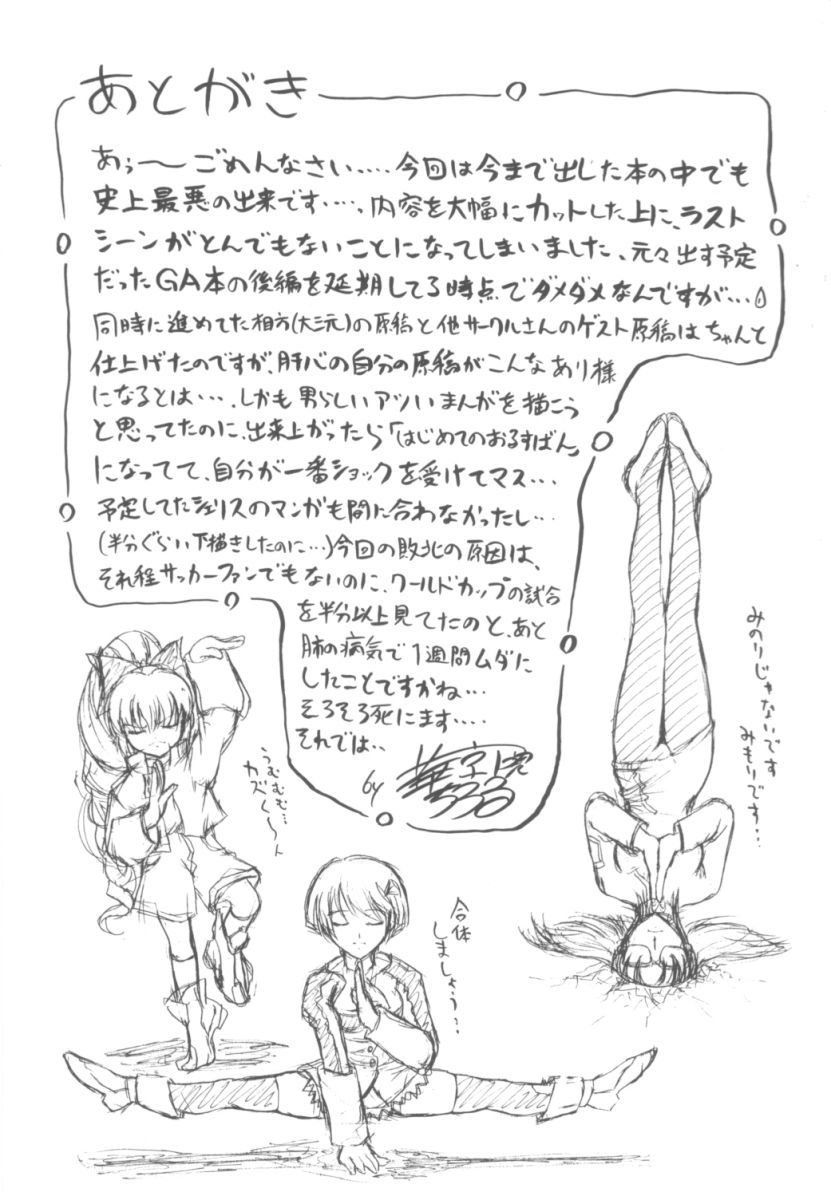 あとがき
あぅ〜ごめんなさい‥‥今回は今まで出した本の中でも
史上最悪の出来です‥‥、内容を大幅にカットした上に、ラスト
シーンがとんでもないことになってしまいました、元々出す予定
だったGA本の後編を延期してる時点でダメダメなんですが‥‥
同時に進めてた相方(大三元)の原稿と他サークルさんのゲスト原稿はちゃんと
仕上げたのですが、肝心の自分の原稿がこんなあり様
になるとは‥‥、しかも男らしいアツいまんがを描こう
と思ってたのに、出来上がったら「はじめてのおるすばん」
になってて、自分が一番ショックを受けてマス‥‥
予定してたシェリスのマンガも間に合わなかったし‥‥
(半分ぐらい下描きしたのに‥‥)今回の敗北の原因は、
それ程サッカーファンでもないのに、ワールドカップの試合
を半分以上見てたのと、あと
肺の病気で1週間ムダに
したことですかね‥‥
そろそろ死にます‥‥
それでは‥
by
みのりじゃないです
みもりです‥
うむむむ‥
カズく〜ん
合体
しましょう‥